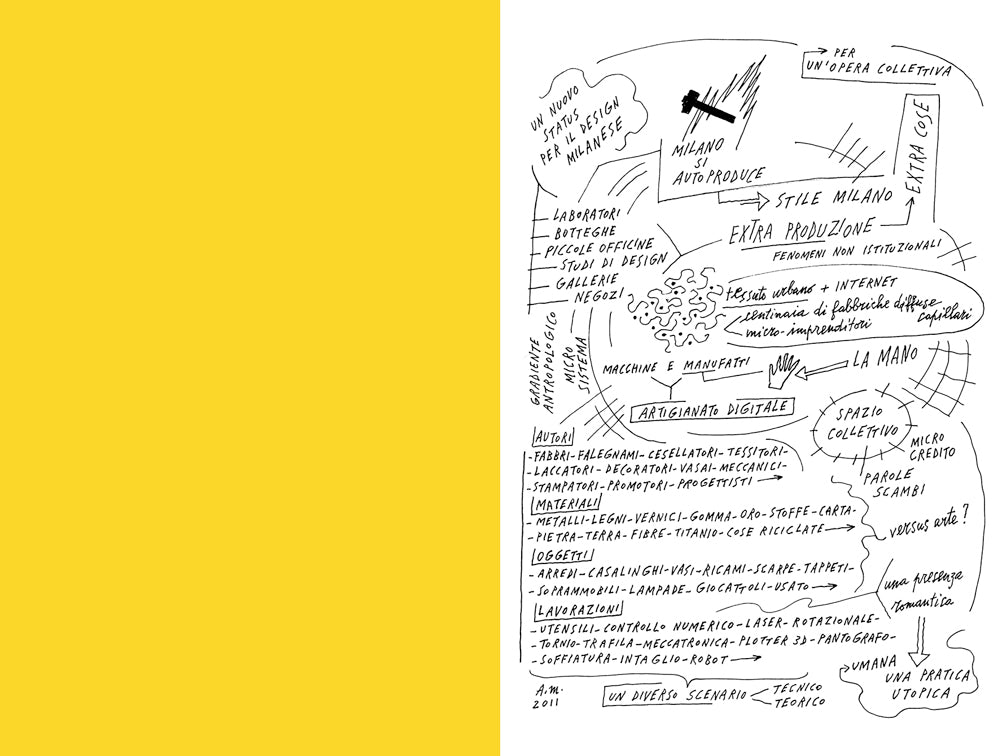 PER
UN'OPERA COLLETTIVA
UN NUOVO
STATUS
PER IL DESIGN
MILANESE
EXTRA COSE
MILANO
SI
AUTOPRODUCE
STILE MILANO
LABORATORI
BOTTEGHE
PICCOLE OFFICINE
STUDI DI DESIGN
GALLERIE
NEGOZI
EXTRA PRODUZIONE
FENOMENI NON ISTITUZIONALI
tessuto urbano + INTERNET
centinaia di fabbriche diffuse
capillari
micro-imprenditori
GRADIENTE
ANTROPOLOGICO
MICRO
SISTEMA
MACCHINE E MANUFATTI
LA MANO
ARTIGIANATO DIGITALE
SPAZIO
COLLETTIVO
MICRO
CREDITO
PAROLE
SCAMBI
AUTORI
-FABBRI-FALEGNAMI-CESELLATORI-TESSITORI-
-LACCATORI-DECORATORI-VASAI-MECCANICI-
-STAMPATORI-PROMOTORI-PROGETTISTI
MATERIALI
-METALLI-LEGNI-VERNICI-GOMMA-ORO-STOFFE-CARTA-
-PIETRA-TERRA-FIBRE-TITANIO-COSE RICICLATE
versus arte?
OGGETTI
-ARREDI-CASALINGHI-VASI-RICAMI-SCARPE-TAPPETI-
-SOPRAMMOBILI-LAMPADE-GIOCATTOLI-USATO
una presenza
romantica
LAVORAZIONI
-UTENSILI-CONTROLLO NUMERICO-LASER-ROTAZIONALE-
-TORNIO-TRAFILA-MECCATRONICA-PLOTTER 3D-PANTOGRAFO-
-SOFFIATURA-INTAGLIO-ROBOT
UMANA
UNA PRATICA
UTOPICA
A.M.
2011
UN DIVERSO SCENARIO
TECNICO
TEORICO